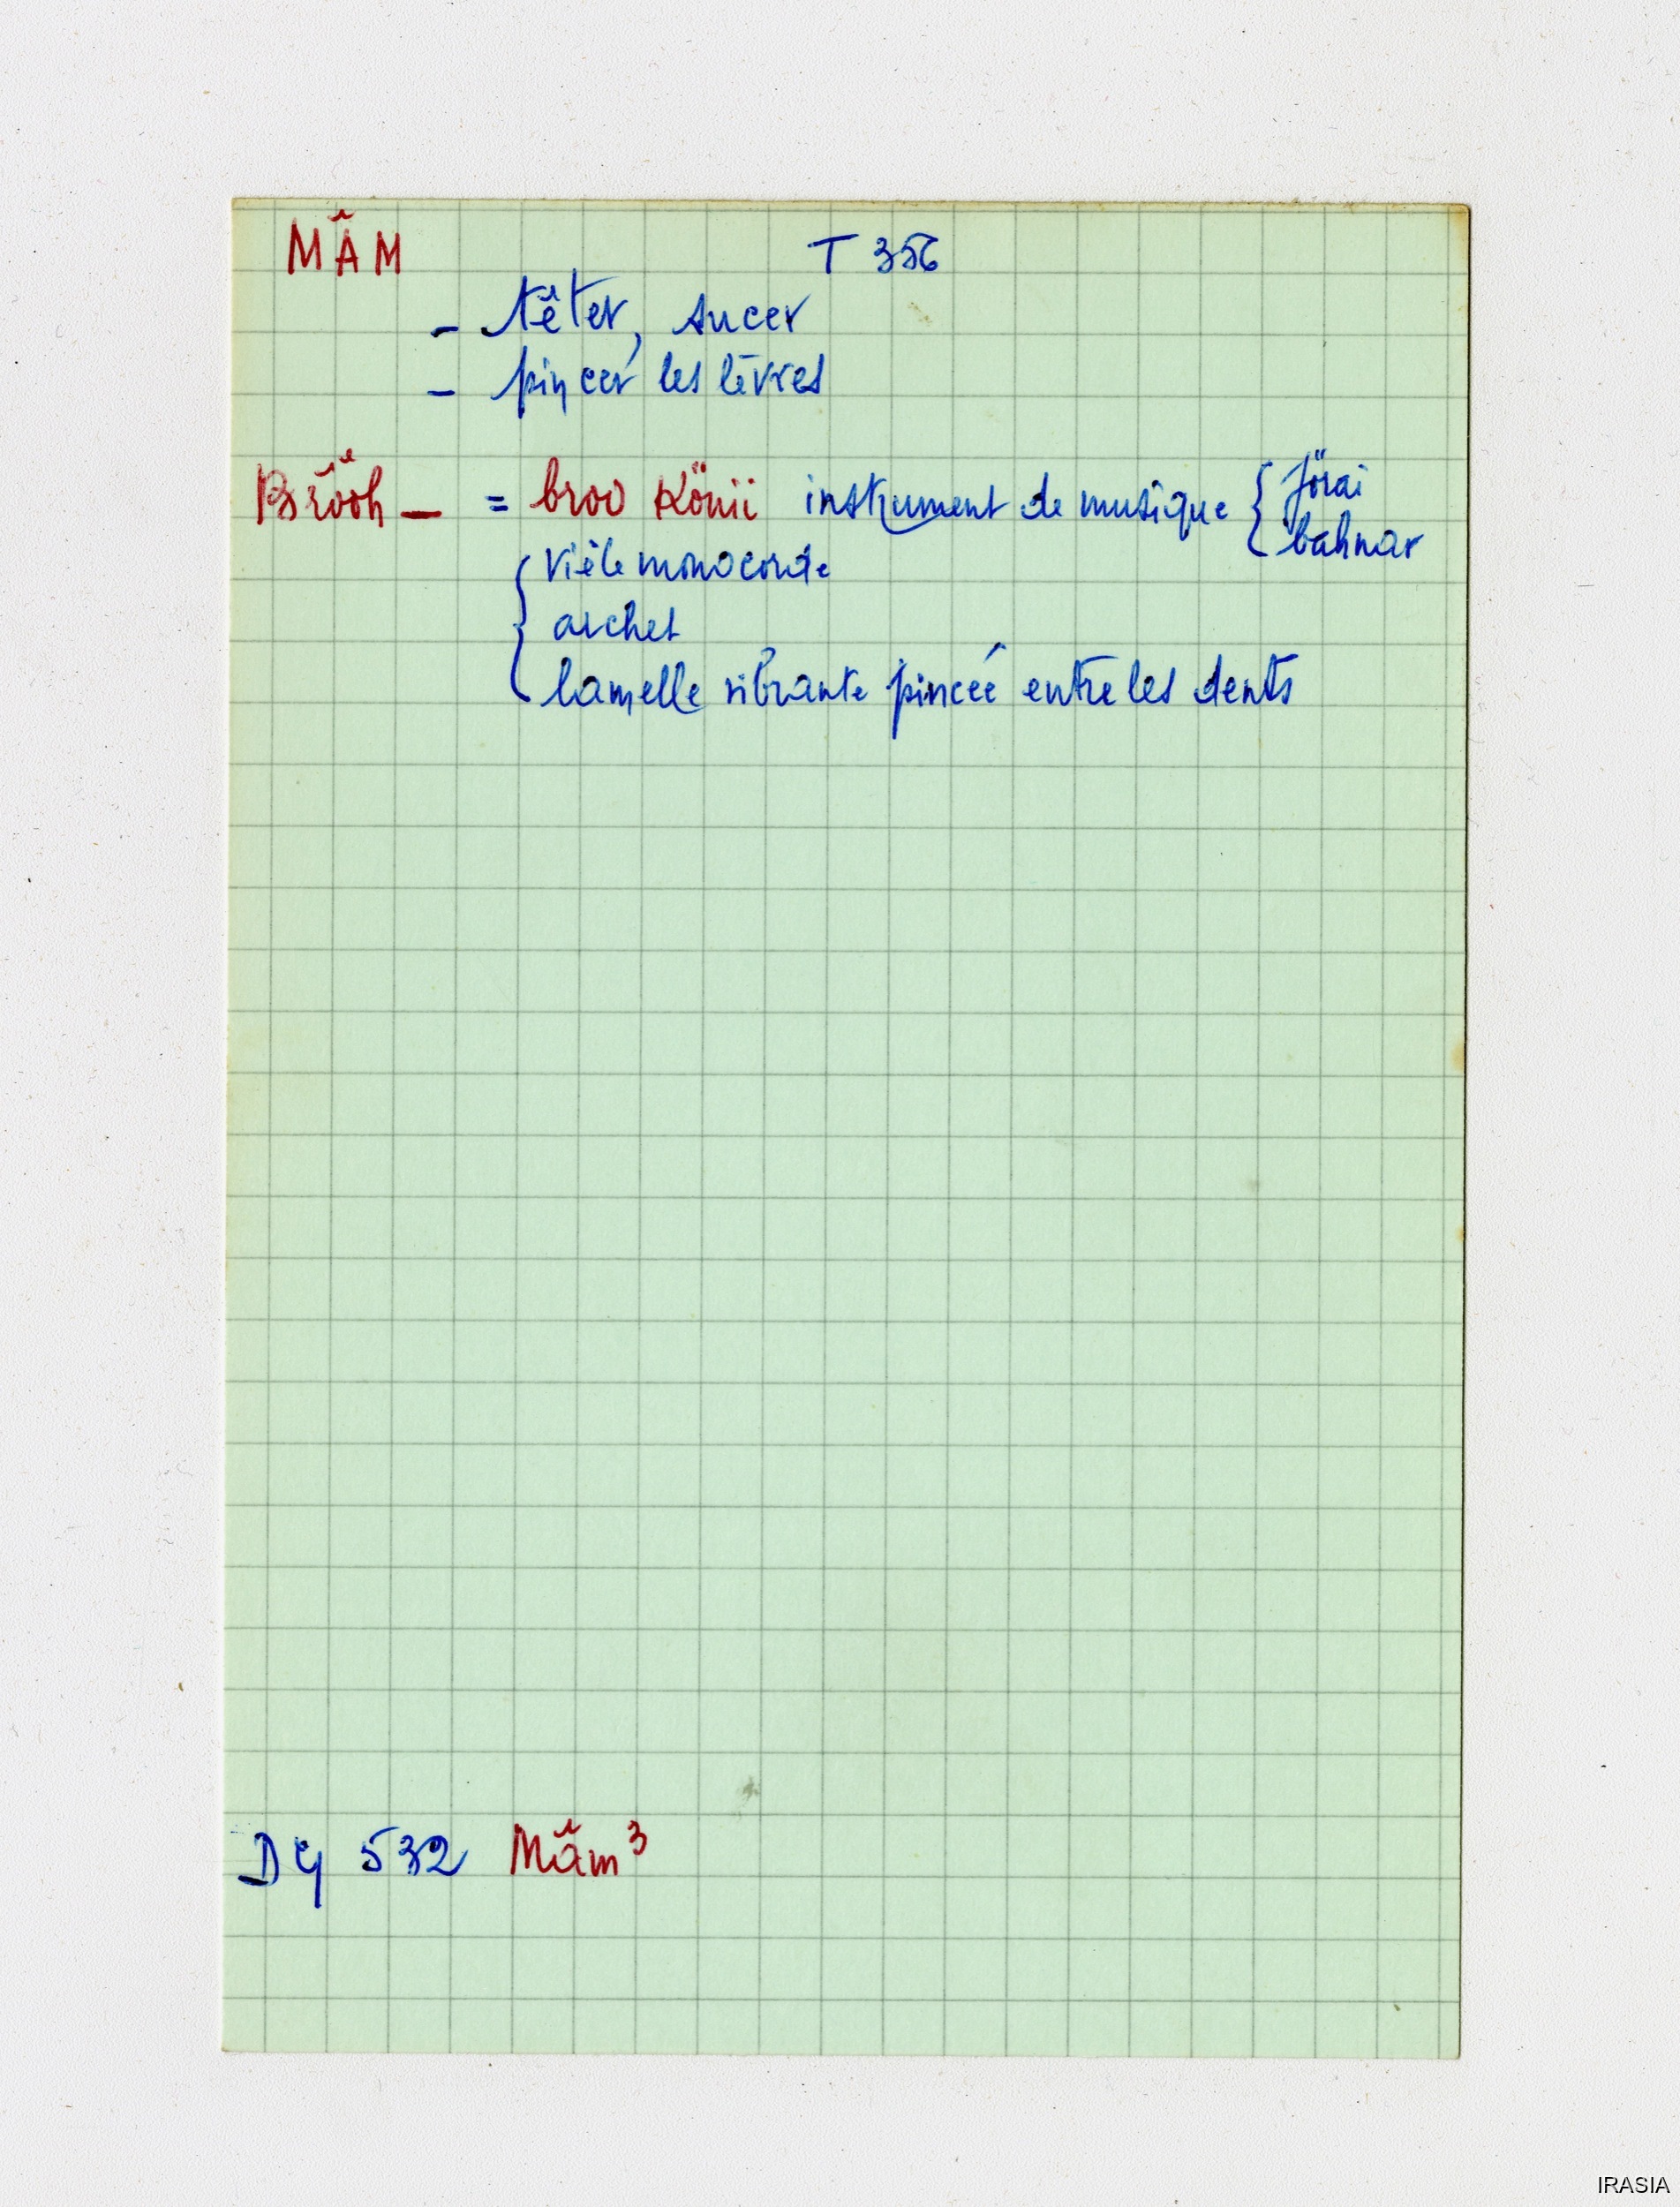 MÂM T 356
- têter, sucer
- pincer les lèvres
Brŏŏh — = broo Könii instrument de musique { Jörai
bahnar
{ vièle monocorde
archet
lamelle vibrante pincée entre les dents
DG 532 Mâm³
IRASIA